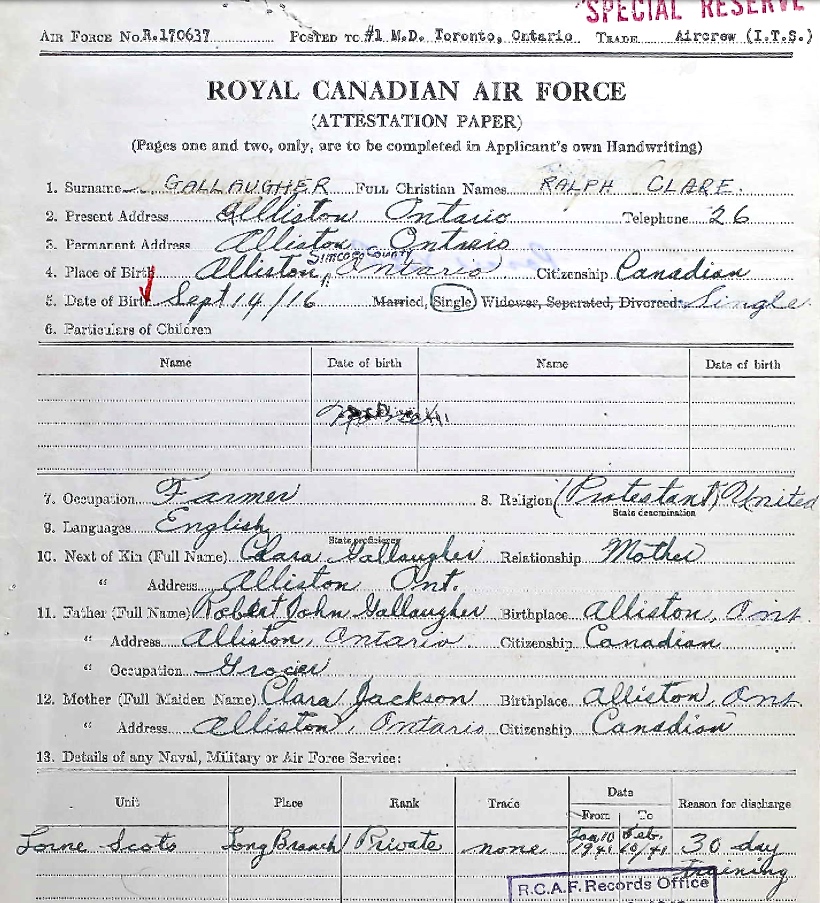 "SPECIAL RESERVE
AIR FORCE No. R.170637 POSTED TO #1 M.D. Toronto, Ontario TRADE Aircrew (I.T.S.)
ROYAL CANADIAN AIR FORCE
(ATTESTATION PAPER)
(Pages one and two, only, are to be completed in Applicant's own Handwriting)
1. Surname GALLAUGHER FULL Christian Names RALPH CLARE.
2. Present Address Alliston Ontario Telephone 26
3. Permanent Address Alliston Ontario
Simcoe County
4. Place of Birth Alliston, Ontario Citizenship Canadian
5. Date of Birth Sept 14/16 Married, Single Widower, Separated, Divorced: Single
6. Particulars of Children
Name Date of birth Name Date of birth
7. Occupation Farmer 8. Religion (Protestant) United
State denomination
9. Languages English
State proficiency
10. Next of Kin (Full Name) Clara Gallaugher Relationship Mother
" Address Alliston Ont.
11. Father (Full Name) Robert John Gallaugher Birthplace Alliston, Ont.
" Address Alliston, Ontario Citizenship Canadian
" Occupation Grocier
12. Mother (Full Maiden Name) Clara Jackson Birthplace Alliston, Ont.
" Address Alliston, Ontario Citizenship Canadian
13. Details of any Naval, Military or Air Force Service:
Unit Place Rank Trade Date Reason for discharge
From To
Lorne Scots Long Branch Private none Jan 10 1941 Feb. 10/41 30 day training
R.C.A.F. Records Office